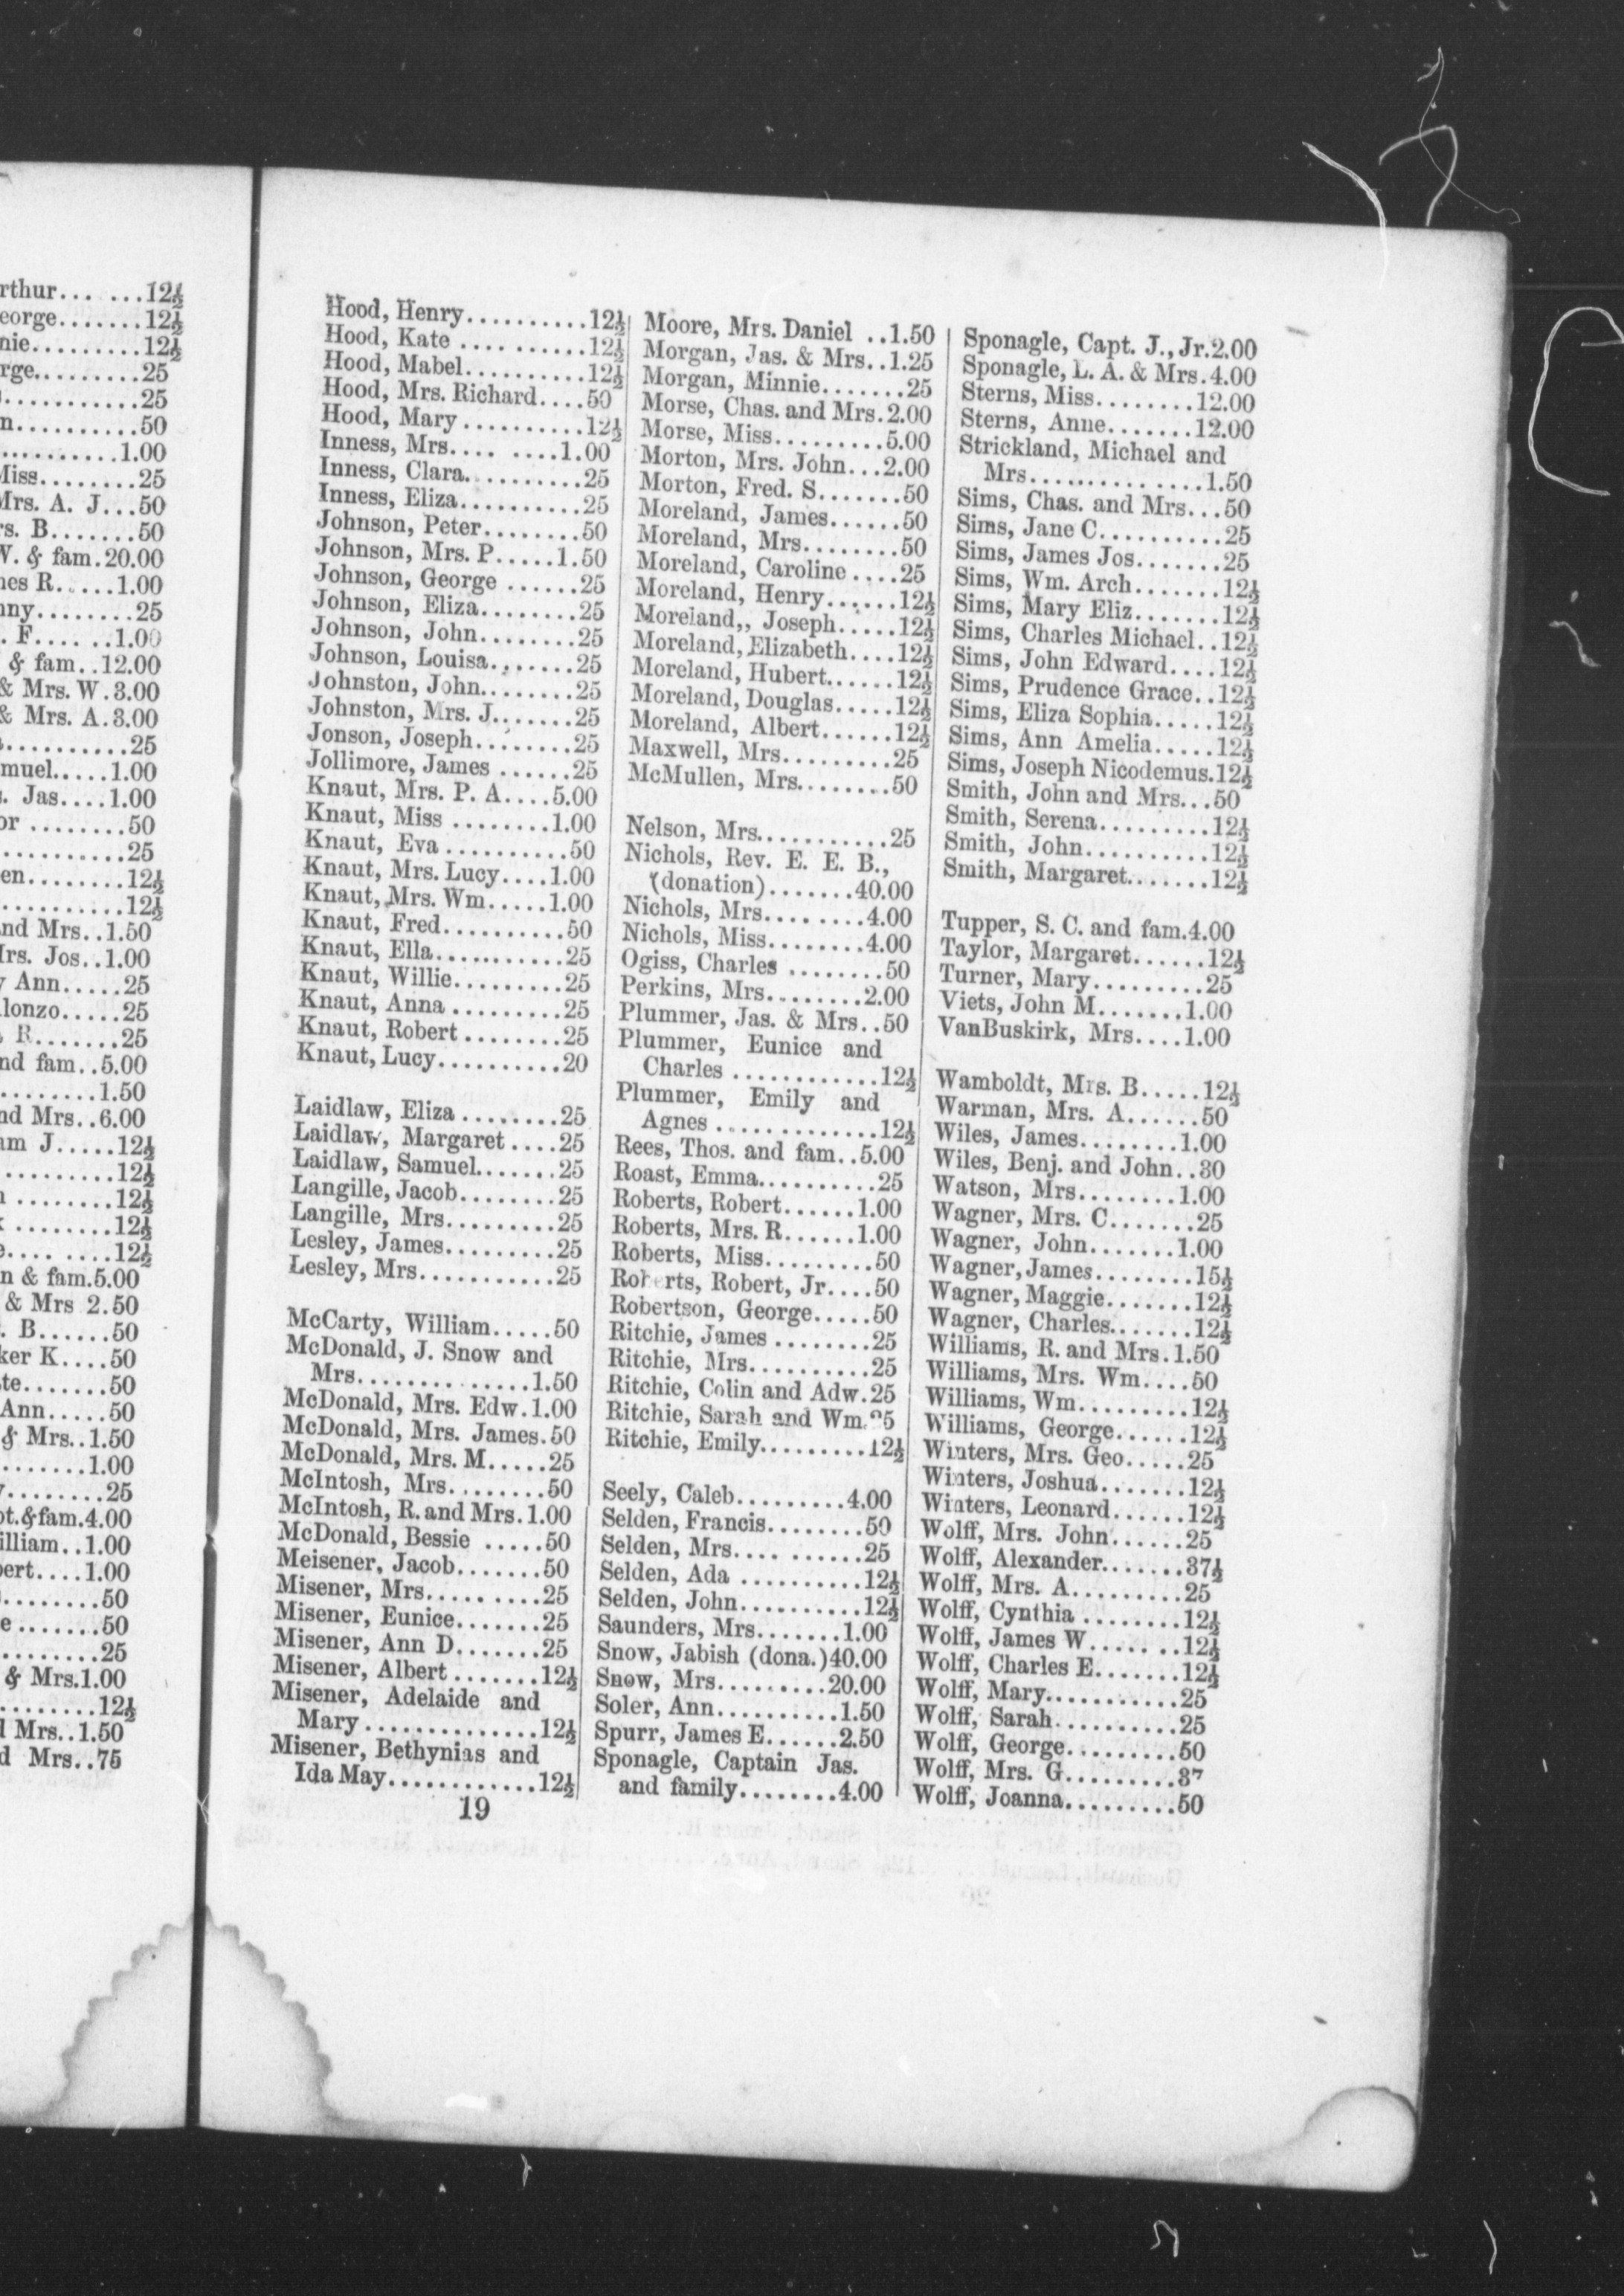 rthur... ...12½
eorge.......12½
nie.........12½
rge.........25
............25
n..........50
...........1.00
Miss........25
Mrs. A. J...50
rs. B.......50
W. & fam.20.00
nes R.....1.00
nny........25
. F.... ..1.00
& fam..12.00
& Mrs. W.3.00
& Mrs. A.3.00
..........25
muel.....1.00
. Jas....1.00
or ........50
...........25
en........12½
...........12½
and Mrs..1.50
Mrs. Jos..1.00
y Ann.....25
lonzo.....25
R.......25
nd fam..5.00
.........1.50
nd Mrs..6.00
am J.....12½
..........12½
........12½
........12½
.... ....12½
n & fam.5.00
& Mrs 2.50
. B......50
ker K....50
te.......50
Ann.....50
& Mrs..1.50
.......1.00
........25
pt.&fam.4.00
illiam..1.00
bert....1.00
........50
e.......50
........25
& Mrs.1.00
.........12½
d Mrs..1.50
d Mrs..75
Hood, Henry..........12½
Hood, Kate ..........12½
Hood, Mabel..........12½
Hood, Mrs. Richard....50
Hood, Mary ..........12½
Inness, Mrs.... ....1.00
Inness, Clara..........25
Inness, Eliza..........25
Johnson, Peter........50
Johnson, Mrs. P.....1.50
Johnson, George ......25
Johnson, Eliza........25
Johnson, John........25
Johnson, Louisa.......25
Johnston, John........25
Johnston, Mrs. J.......25
Jonson, Joseph........25
Jollimore, James ......25
Knaut, Mrs. P. A....5.00
Knaut, Miss ........1.00
Knaut, Eva ..........50
Knaut, Mrs. Lucy....1.00
Knaut, Mrs. Wm.....1.00
Knaut, Fred..........50
Knaut, Ella...........25
Knaut, Willie.........25
Knaut, Anna .........25
Knaut, Robert ........25
Knaut, Lucy..........20
Laidlaw, Eliza ........25
Laidlaw, Margaret ....25
Laidlaw, Samuel.......25
Langille, Jacob........25
Langille, Mrs.........25
Lesley, James.........25
Lesley, Mrs...........25
McCarty, William.....50
McDonald, J. Snow and
Mrs..............1.50
McDonald, Mrs. Edw.1.00
McDonald, Mrs. James.50
McDonald, Mrs. M.....25
McIntosh, Mrs.........50
McIntosh, R. and Mrs.1.00
McDonald, Bessie .....50
Meisener, Jacob.......50
Misener, Mrs..........25
Misener, Eunice.......25
Misener, Ann D.......25
Misener, Albert .......12½
Misener, Adelaide and
Mary ..............12½
Misener, Bethynias and
Ida May............12½
19
Moore, Mrs. Daniel ..1.50
Morgan, Jas. & Mrs..1.25
Morgan, Minnie.......25
Morse, Chas. and Mrs.2.00
Morse, Miss.........5.00
Morton, Mrs. John...2.00
Morton, Fred. S.......50
Moreland, James......50
Moreland, Mrs........50
Moreland, Caroline ....25
Moreland, Henry......12½
Moreland,, Joseph.....12½
Moreland, Elizabeth....12½
Moreland, Hubert......12½
Moreland, Douglas.....12½
Moreland, Albert......12½
Maxwell, Mrs.........25
McMullen, Mrs........50
Nelson, Mrs...........25
Nichols, Rev. E. E. B.,
(donation).......40.00
Nichols, Mrs........4.00
Nichols, Miss........4.00
Ogiss, Charles ........50
Perkins, Mrs........2.00
Plummer, Jas. & Mrs..50
Plummer, Eunice and
Charles ............12½
Plummer, Emily and
Agnes .............12½
Rees, Thos. and fam..5.00
Roast, Emma..........25
Roberts, Robert......1.00
Roberts, Mrs. R......1.00
Roberts, Miss.........50
Roberts, Robert, Jr....50
Robertson, George.....50
Ritchie, James ........25
Ritchie, Mrs..........25
Ritchie, Colin and Adw.25
Ritchie, Sarah and Wm.25
Ritchie, Emily.........12½
Seely, Caleb.........4.00
Selden, Francis........50
Selden, Mrs.... ......25
Selden, Ada ..........12½
Selden, John..........12½
Saunders, Mrs.......1.00
Snow, Jabish (dona.)40.00
Snow, Mrs.........20.00
Soler, Ann..........1.50
Spurr, James E......2.50
Sponagle, Captain Jas.
and family........4.00
Sponagle, Capt. J., Jr.2.00
Sponagle, L. A. & Mrs.4.00
Sterns, Miss........12.00
Sterns, Anne.......12.00
Strickland, Michael and
Mrs..............1.50
Sims, Chas. and Mrs...50
Sims, Jane C..........25
Sims, James Jos.......25
Sims, Wm. Arch.......12½
Sims, Mary Eliz.......12½
Sims, Charles Michael..12½
Sims, John Edward....12½
Sims, Prudence Grace..12½
Sims, Eliza Sophia.....12½
Sims, Ann Amelia.....12½
Sims, Joseph Nicodemus.12½
Smith, John and Mrs...50
Smith, Serena.........12½
Smith, John..........12½
Smith, Margaret.......12½
Tupper, S. C. and fam.4.00
Taylor, Margaret......12½
Turner, Mary.........25
Viets, John M.......1.00
VanBuskirk, Mrs....1.00
Wamboldt, Mrs. B.....12½
Warman, Mrs. A......50
Wiles, James........1.00
Wiles, Benj. and John..30
Watson, Mrs........1.00
Wagner, Mrs. C.......25
Wagner, John.......1.00
Wagner, James........15½
Wagner, Maggie.......12½
Wagner, Charles.......12½
Williams, R. and Mrs.1.50
Williams, Mrs. Wm....50
Williams, Wm.........12½
Williams, George......12½
Winters, Mrs. Geo.....25
Winters, Joshua.......12½
Winters, Leonard......12½
Wolff, Mrs. John......25
Wolff, Alexander.......37½
Wolff, Mrs. A.........25
Wolff, Cynthia ........12½
Wolff, James W.... ..12½
Wolff, Charles E.......12½
Wolff, Mary...........25
Wolff, Sarah..........25
Wolff, George.........50
Wolff, Mrs. G.........37
Wolff, Joanna.........50